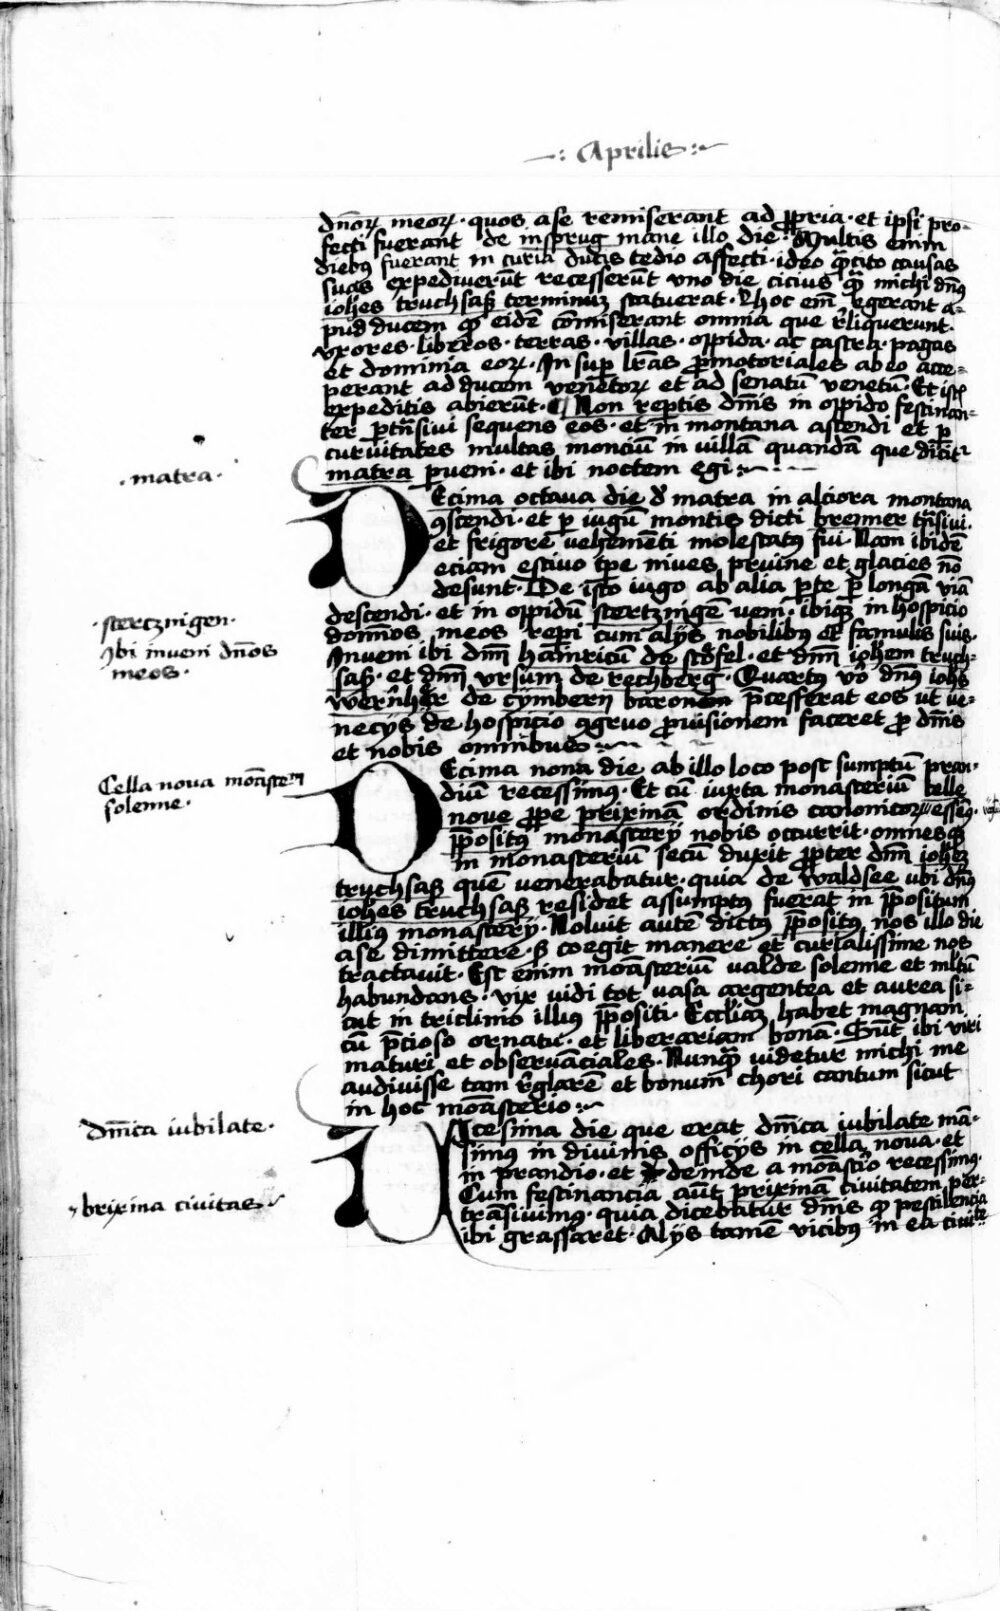 Aprilis
dñoꝝ meoꝝ · quos a se remiserant ad ꝓpria · et ipsi pro-
fecti fuerant de insprug mane illo die · Multis enim
diebꝰ fuerant in curia ducis tedio affecti · ideo
suas expediverūt recesserūt uno die cicius michi dñs
ioħes truchsaß terminuʒ statuerat · hoc em̄ egerant a-
pud ducem eidē cōmiserant omnia que reliquerunt ·
uxores · liberos · terras · villas · oppida · ac castra · pagas
et dominia eoꝝ · Insuꝑ lr̄as ꝓmotoriales ab eo acce-
perant ad ducem venetoꝝ et ad senatū venetū · Et
expeditis abierūt · ¶ Non reptis dn̄is in oppido festinan-
ter ꝑtn̄sivi sequens eos · et in montana ascendi et ꝑ
curvitates multas monciūm in villam quandā que dicit̃
matra ꝑveni · et ibi noctem egi :~
· matra ·
DEcima octava die de matra in alciora montana
ꝯscendi · et ꝑ iugū montis dicti brenner tn̄sivi ·
et frigore vehementi molestatꝰ fui · Nam ibidē
eciam estivo tꝑe nives pruine et glacies nō
desunt · De isto iugo ab alia ꝑte ꝑ longā viā
descendi · et in oppidū stertzingen veni · ibiqꝫ in hospicio
domīos meos reperi cum alijs nobilibꝰ et famulis suis ·
Inveni ibi dn̄m hainricū de stöfel · et dn̄m ioħem truch-
saß · et dn̄m ursum de rechberg · Quartꝰ v̄o dn̄us ioħs
wernher de cymbern baronem p̄cesserat eos ut ve-
necijs de hospicio ꝯgruo ꝓvisionem faceret ꝓ dn̄is
et nobis omnibus :~
· stertzingen ·
Ibi inveni dn̄os
meos ·
DEcima nona die ab illo loco post sumptū pran-
diū recessimꝰ · Et cū iuxta monasteriū celle
nove ꝓpe prixinā ordinis canonicoꝝ essemꝰ ·
p̄positꝰ monasterij nobis occurrit · omnesqꝫ
in monasteriū secū duxit ꝓpter dn̄m ioħeʒ
truchsaß quē venerabatur · quia de waldsee ubi dn̄us
ioħes truchsaß residet assumptꝰ fuerat in p̄positum
illius monasterij · Noluit autē dictꝰ p̄positꝰ nos illo die
a se dimittere · s̄ coegit manere et curialissime nos
tractavit · Est enim monasteriū valde solenne et mltū
habundans · vix vidi tot vasa argentea et aurea si-
cut in triclinio illius p̄positi · Eccliaʒ habet magnam
cū p̄cioso ornatu · et liberariam bonā · Sūt ibi viri
maturi et observanciales · Nunqᷓ videtur michi me
audivisse tam reglarē et bonum chori cantum sicut
in hoc monasterio :~
Cella nova monasterm̄
solenne ·
VIcesima die que erat dn̄ica iubilate mā-
simus in divinis officijs in cella nova · et
in prandio · et deinde a monastīo recessimꝰ ·
Cum festinancia aūt prixinā civitatem per-
transivimꝰ · quia dicebatur dn̄is ꝙ pestilencia
ibi grassaret · Alijs tamē vicibꝰ in ea civite
dn̄ica iubilate ·
brixina civitas